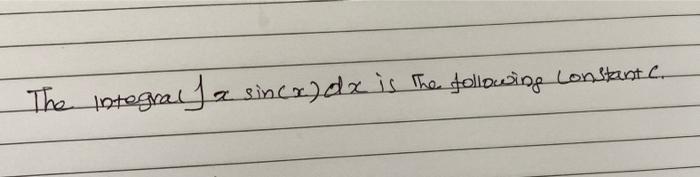 The integral ∫ x sin(x) dx is The following constant c.